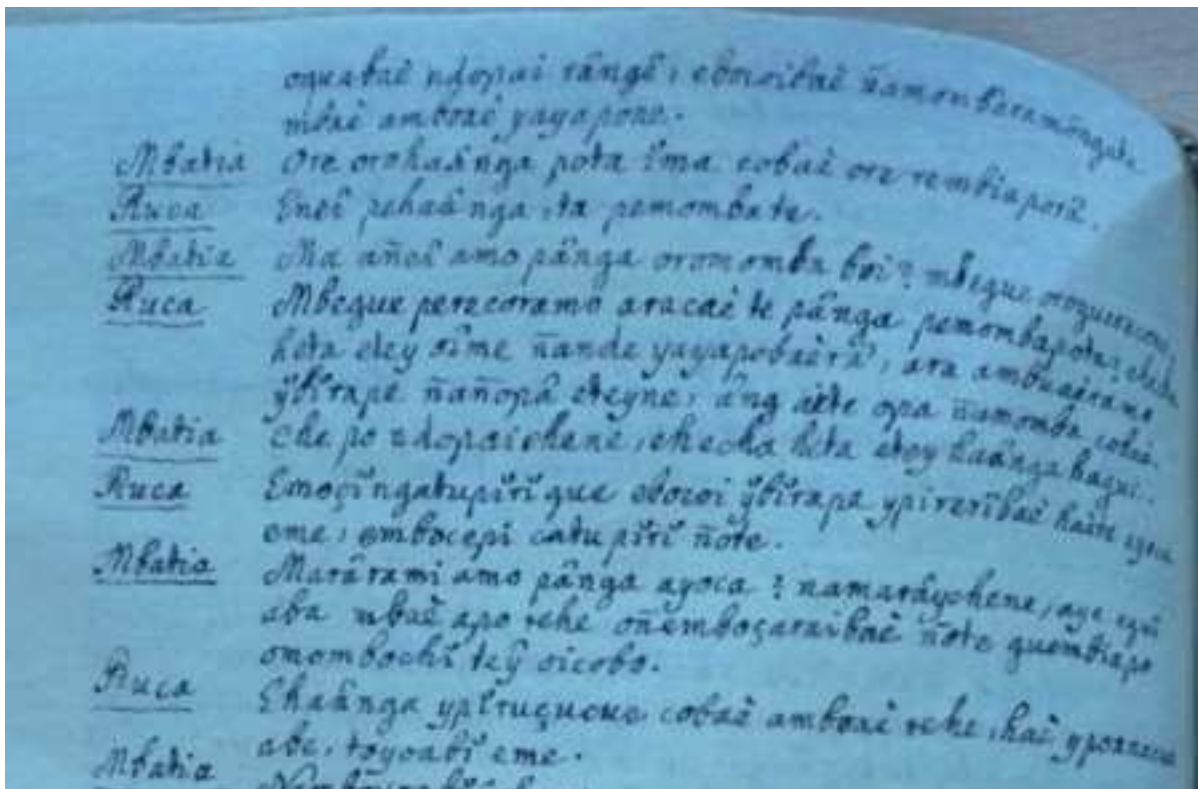 oquabaè ndopai rângê, eboɾoibaè ñamombaramôngatu
mbaè amboaè yayapone.
Mbatia Ore orohaânga pota ĭma cobaè ore rembiaporâ.
Ruca Eneĭ pehaânga, ta pemombate.
Mbatia Ma añeĭ amo pânga oromomba boi? mbegue
Ruca Mbegue perecoramo aracaè te pânga pemombapota?
heta etey oîme ñande yayapobaèrâ, ara ambuaèramo
ўbĭrape ñañopâ eteyne, âng aète opa ñamomba cobaè.
Mbatia Che po ndopaichene, checha heta etey haânga hagui.
Ruca Emoçĭngatupĭrĭ que eboɾoi ўbĭrape ypirerĭbaè haète
eme, embocepi catupĭrĭ ñote.
Mbatia Marârami amo pânga ayoca? namarâychene, aye
aba mbaè apo rehe oñemboçaraibaè ñote guembiapo
omombochĭ teŷ oicobo.
Ruca Ehaânga ypĭruçucue cobaè amboaè rehe, haè
abe, toyoabĭ eme.
Mbatia